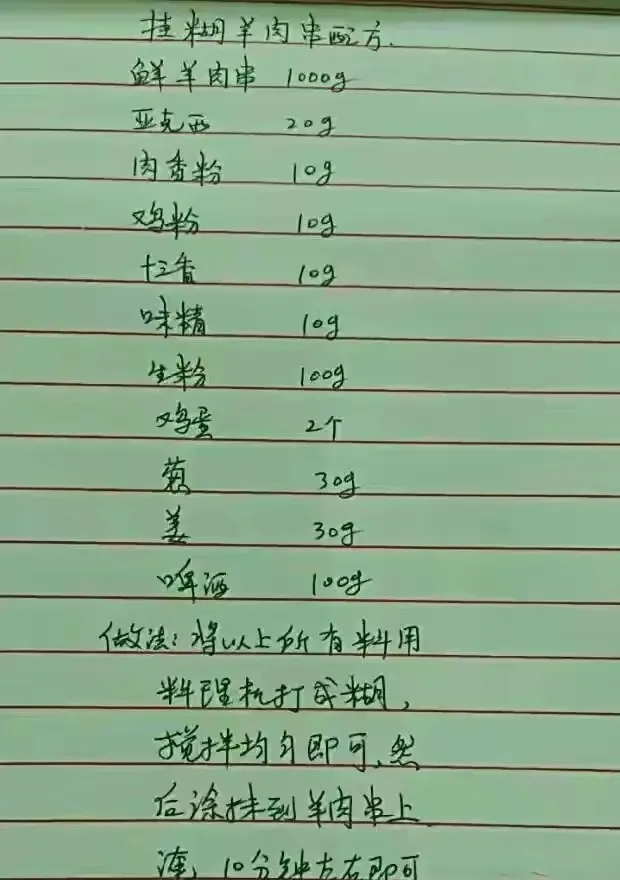 挂糊羊肉串配方.
鲜羊肉串 1000g
亚克西 20g
肉香粉 10g
鸡粉 10g
十三香 10g
味精 10g
生粉 100g
鸡蛋 2个
葱 30g
姜 30g
啤酒 100g
做法:将以上所有料用
料理机打成糊,
搅拌均匀即可,然
后涂抹到羊肉串上
淹,10分钟左右即可